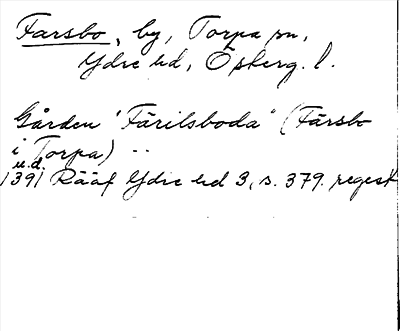 Farsbo, by, Torpa sn,
Ydre hd, Österg. l.
Gården "Färilsboda" (Färsbo
i Torpa) ..
u.d.
1391 Rääf Ydre hd 3, s. 379. regest